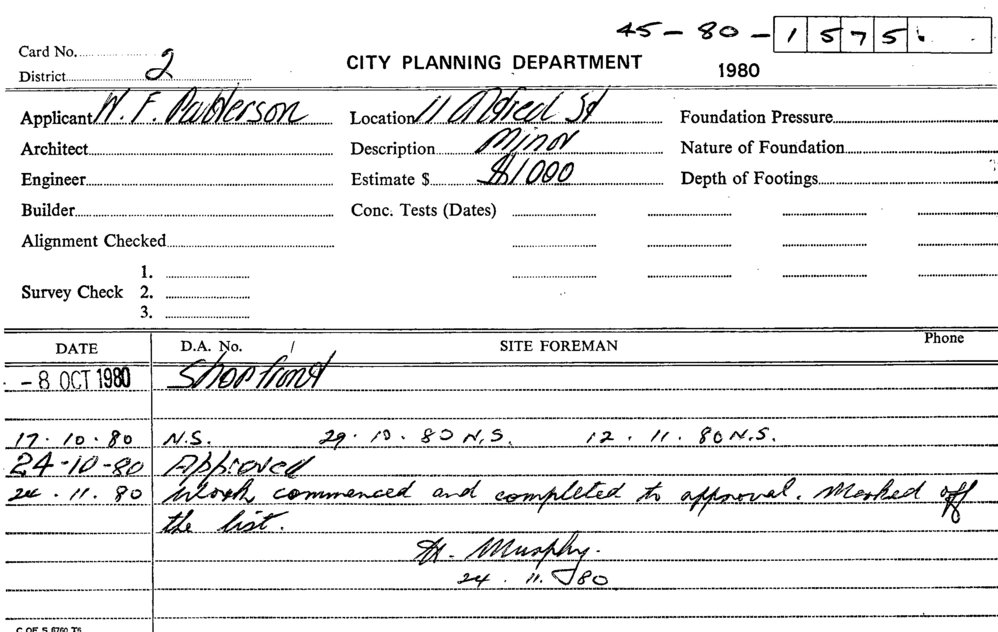 45-80-1575.
Card No.
District 2
CITY PLANNING DEPARTMENT
1980
Applicant W. F. Patterson
Location 11 Alfred St
Foundation Pressure
Architect
Description Minor
Nature of Foundation
Engineer
Estimate $ $1000
Depth of Footings
Builder
Conc. Tests (Dates)
Alignment Checked
Survey Check
1.
2.
3.
DATE
D.A. No. /
SITE FOREMAN
Phone
- 8 OCT 1980 Shopfront
17.10.80 N.S. 29.10.80 N.S. 12.11.80 N.S.
24-10-80 Approved
24.11.80 Work commenced and completed to approval. Marked off
the list.
Murphy.
24.11.80
C OF S 6760 T5